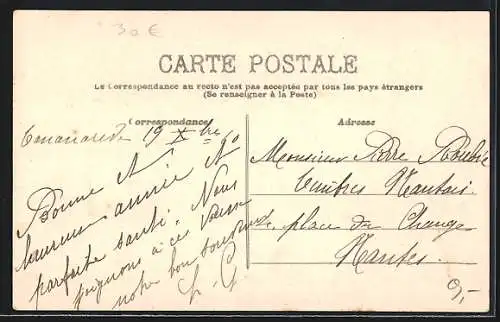 30 €
CARTE POSTALE
La Correspondance au recto n'est pas acceptée par tous les pays étrangers
(Se renseigner à la Poste)
Correspondance
Adresse
19 Xbre
Bonne
heureuse année
parfaite santé. Nous
joignons à ces vœux
notre bon souvenir
Monsieur Pierre
Timbres Nantais
place du Change
Nantes.